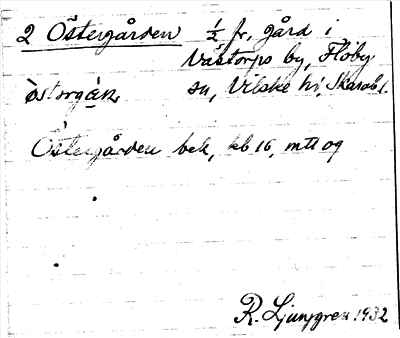 2 Östergården ½ fr, gård i
Västorps by, Floby
östərgán. sn, Vilske hd, Skarab l.
Östergården bek, kb 16, mtl og
R. Ljunggren 1932